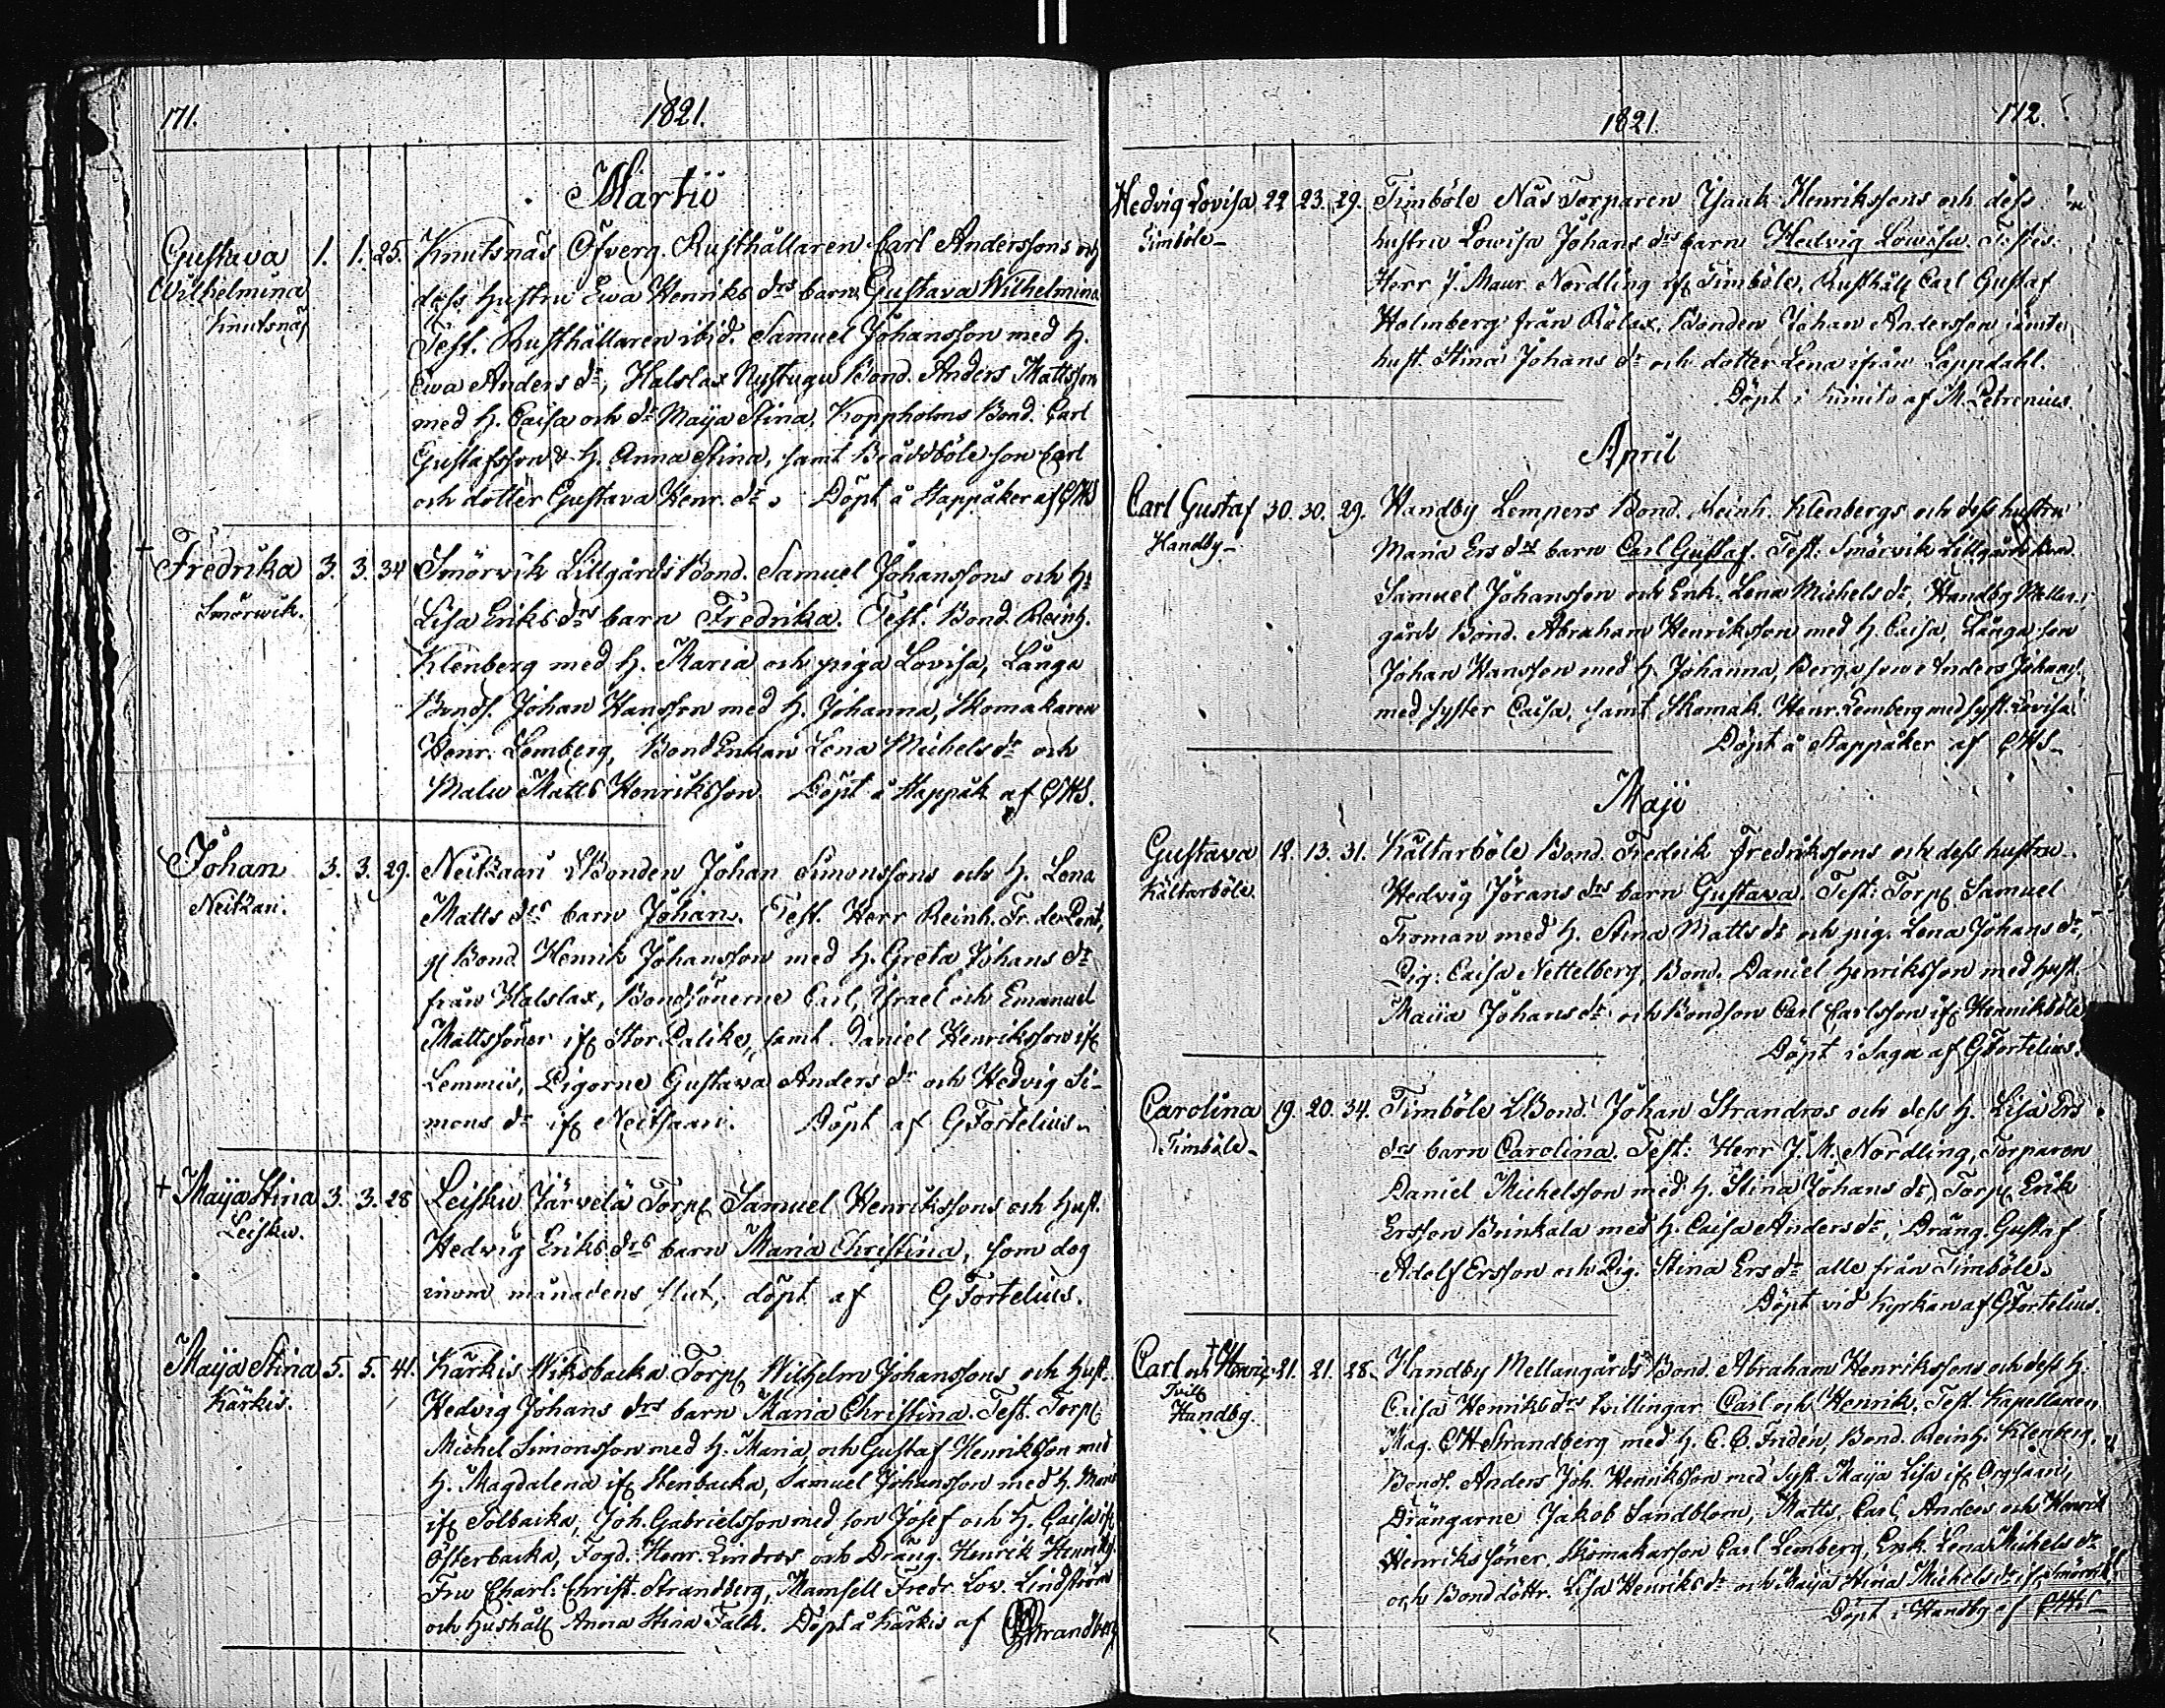 171. 1821.
Martii
Gustava 1. 1. 25. Knutsnäs Öfverg. Rusthållaren Carl Anderssons och
Wilhelmina dess hustru Ewa Henriks drs barn Gustava Wilhelmina
Knutsnäs Test. Rusthållaren ibid. Samuel Johansson med H.
Ewa Anders dr, Halslax Nystugu Bond. Anders Mattsson
med H. Caisa och dr Maija Stina, Koppholms Bond. Carl
Gustafsson & H. Anna Stina, samt Bräddböle son Carl
och dotter Gustava Henr. dr. Döpt å Kappåker af CHS
+ Fredrika 3. 3. 34 Smörvik Lillgårds Bond. Samuel Johanssons och H.
Smörwik. Lisa Eriks drs barn Fredrika. Test. Bond. Reinh.
Klenberg med H. Maria och piga Lovisa, Långa
Bonds. Johan Hansson med H. Johanna, Skomakaren
Henr. Lemberg, Bond Enkan Lena Michels dr och
Matts Henriksson. Döpt å Kappåk. af CHS.
Johan 3. 3. 29. Neitzaari Bonden Johan Simonssons och H. Lena
Neitzari. Matts drs barn Johan. Test. Herr Reinh. Fr. de Pont,
Bond Henrik Johansson med H. Greta Johans dr
från Halslax, Bondsönerne Carl, Israel och Emanuel
Mattssöner ifr Stor Palike, samt Daniel Henriksson ifr
Lemmis, Pigorne Gustava Anders dr och Hedvig Si-
mons dr ifr Neitsaari. Döpt af GTortelius.
+ Maija Stina 3. 3. 28 Leisku Järvelä Torp. Samuel Henrikssons och Hust.
Leisku. Hedvig Eriks drs barn Maria Christina, som dog
inom månadens slut, döpt af GTortelius.
Maija Stina 5. 5. 41. Kärkis Wiksbacka Torp. Wilhelm Johanssons och Hust.
Kärkis. Hedvig Johans drs barn Maria Christina. Test. Torp.
Michel Simonsson med H. Maria, och Gustaf Henriksson med
H. Magdalena ifr Stenbacka, Samuel Johansson med H. Maria
ifr Solbacka, Joh. Gabrielsson med son Josef och H. Caisa ifr
Österbacka, Fogd. Henr. Lindros och Dräng. Henrik Henriks.
Fru Charl. Christ. Strandberg, Mamsell Fredr. Lov. Lindström
och Hushåll. Anna Stina Falk. Döpt å Kärkis af CHStrandberg
1821. 172.
Hedvig Lovisa 22 23. 29. Timböle Näs Torparen Isaak Henrikssons och dess
Timböle hustru Lowisa Johans drs barn Hedvig Lowisa. Testes:
Herr J. Maur. Nordling ifr Timböle, Rusthåll. Carl Gustaf
Holmberg från Rålax, Bonden Johan Andersson jämte
hust. Stina Johans dr och dotter Lena ifrån Lappdahl.
Döpt i Kimito af M. Petrenius.
April
Carl Gustaf 30. 30. 29. Handby Lempers Bond. Reinh. Klenbergs och dess hustru
Handby Maria Ers drs barn Carl Gustaf. Test: Smörvik Lillgårds Bond.
Samuel Johansson och Enk. Lena Michels dr, Handby Mellan-
gårds Bond. Abraham Henriksson med H. Caisa, Långa son
Johan Hansson med H. Johanna, Berga son Anders Johans.
med syster Caisa, samt Skomak. Henr. Lemberg med syst. Lovisa
Döpt å Kappåker af CHS
Maji
Gustava 12. 13. 31. Kältarböle Bond. Fredrik Fredrikssons och dess hustru
Kältarböle. Hedvig Jörans drs barn Gustava. Test: Torp. Samuel
Froman med H. Stina Matts dr och pig. Lena Johans dr,
Pig: Caisa Nettelberg, Bond. Daniel Henriksson med Hust.
Maija Johans dr och Bondson Carl Carlsson ifr Henriksböle
Döpt i Sagu af GTortelius.
Carolina 19. 20. 34. Timböle Bond. Johan Strandros och dess H. Lisa Ers
Timböle drs barn Carolina. Test: Herr J. M. Nordling, Torparen
Daniel Michelsson med H. Stina Johans dr, Torp. Erik
Ersson Brinkala med H. Caisa Anders dr, Dräng. Gustaf
Adolf Ersson och Pig. Stina Ers dr alle från Timböle.
Döpt vid Kyrkan af GTortelius.
Carl och + Henric 21. 21. 28. Handby Mellangårds Bond. Abraham Henrikssons och dess H.
Tvill. Caisa Henriks drs tvillingar Carl och Henrik. Test. Kapellanen
Handby. Mag. CHStrandberg med H. C. C. Fridén, Bond. Reinh. Klenberg,
Bonds. Anders Joh. Henriksson med Syst. Maija Lisa ifr
Drängarne Jakob Sandblom, Matts, Carl, Anders och Henrik
Henrikssöner, Skomakarson Carl Lemberg, Enk. Lena Michels dr
och Bonddöttr. Lisa Henriks dr och Maija Stina Michels dr ifr Smörvik.
Döpt i Handby af CHS